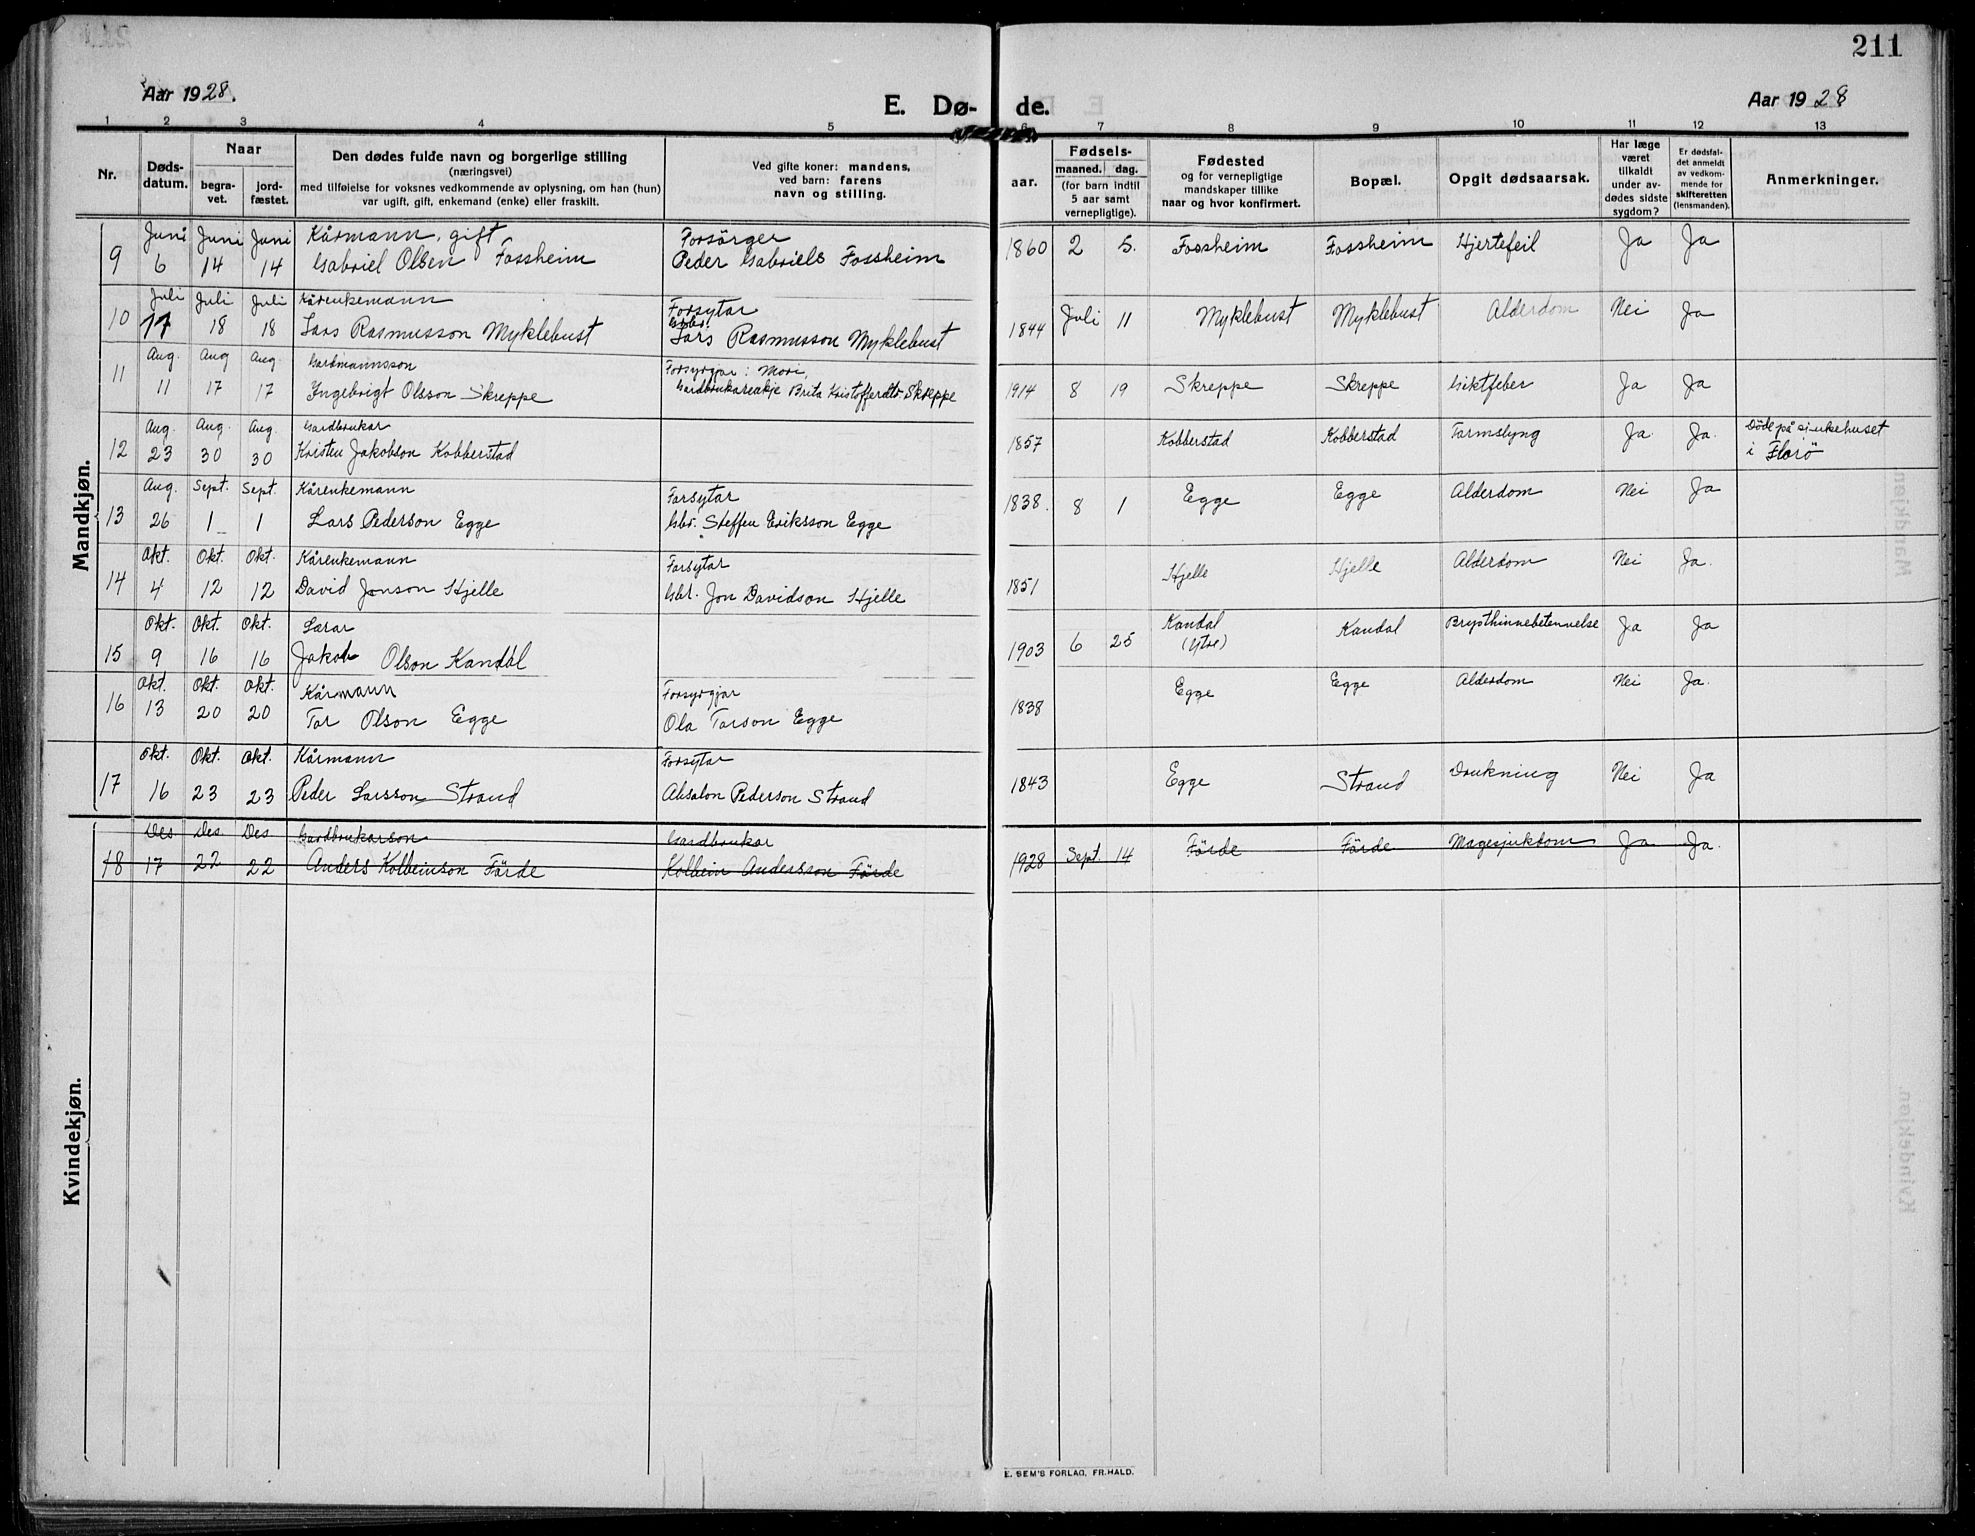 211
Aar 1928.
E. Dø- de.
Aar 1928
1 2 3 4 5 6 7 8 9 10 11 12 13
Nr.
Døds-
datum.
Naar
begra-
vet.
jord-
fæstet.
Den dødes fulde navn og borgerlige stilling
(næringsvei)
med tilføielse for voksnes vedkommende av oplysning, om han (hun)
var ugift, gift, enkemand (enke) eller fraskilt.
Ved gifte koner: mandens,
ved barn: farens
navn og stilling.
Fødsels-
aar.
maaned. dag.
(for barn indtil
5 aar samt
vernepligtige).
Fødested
og for vernepligtige
mandskaper tillike
naar og hvor konfirmert.
Bopæl.
Opgit dødsaarsak.
Har læge
været
tilkaldt
under av-
dødes sidste
sygdom?
Er dødsfal-
det anmeldt
av vedkom-
mende for
skifteretten
(lensmanden).
Anmerkninger.
Mandkjøn.
Juni Juni Juni Kårmann, gift Forsörger
9 6 14 14 Gabriel Olsen Fossheim Peder Gabriels Fossheim 1860 2 5. Fossheim Fossheim Hjertefeil Ja Ja
Juli Juli Juli Kårenkemann Forsytar
Gbr.
10 17 18 18 Lars Rasmusson Myklebust Lars Rasmusson Myklebust 1844 Juli 11 Myklebust Myklebust Alderdom Nei Ja
Aug. Aug Aug. Gardmannsson Forsyrgjar: Mori,
11 11 17 17 Ingebrigt Olsson Skreppe Gardbrukarenkje Brita Kristofferdtr Skreppe 1914 8 19 Skreppe Skreppe Giktfeber Ja Ja
Aug. Aug. Aug. Gardbrukar
12 23 30 30 Kristen Jakobson Kobberstad 1857 Kobberstad Kobberstad Tarmslyng Ja Ja. Döde på sjukehuset
i Florø
Aug. Sept. Sept. Kårenkemann Forsytar
13 26 1 1 Lars Pederson Egge Gbr. Steffen Eriksson Egge 1838. 8 1 Egge Egge Alderdom Nei Ja
Okt. Okt. Okt. Kårenkemann Forsytar
14 4 12 12 David Jonson Hjelle Gbr. Jon Davidson Hjelle 1851 Hjelle Hjelle Alderdom Nei Ja.
Okt. Okt. Okt. Lærar
15 9 16 16 Jakob Olson Kandal 1903 6 25 Kandal
(Ytre) Kandal Brysthinnebetennelse Ja Ja
Okt. Okt. Okt. Kårmann Forsyrgjar
16 13 20 20 Tor Olson Egge Ola Torson Egge 1838 Egge Egge Alderdom Nei Ja.
Okt. Okt. Okt. Kårmann Forsytar
17 16 23 23 Peder Larsson Strand Absalon Pederson Strand 1843 Egge Strand Drukning Nei Ja
Des Des Des Gardbrukarson Gardbrukar
18 17 22 22 Anders Kolbeinson Förde Kolbein Andersson Förde 1928 Sept. 14 Förde Förde Magesjukdom Ja Ja.
Kvindekjøn.
E. SEM'S FORLAG, FR.HALD.